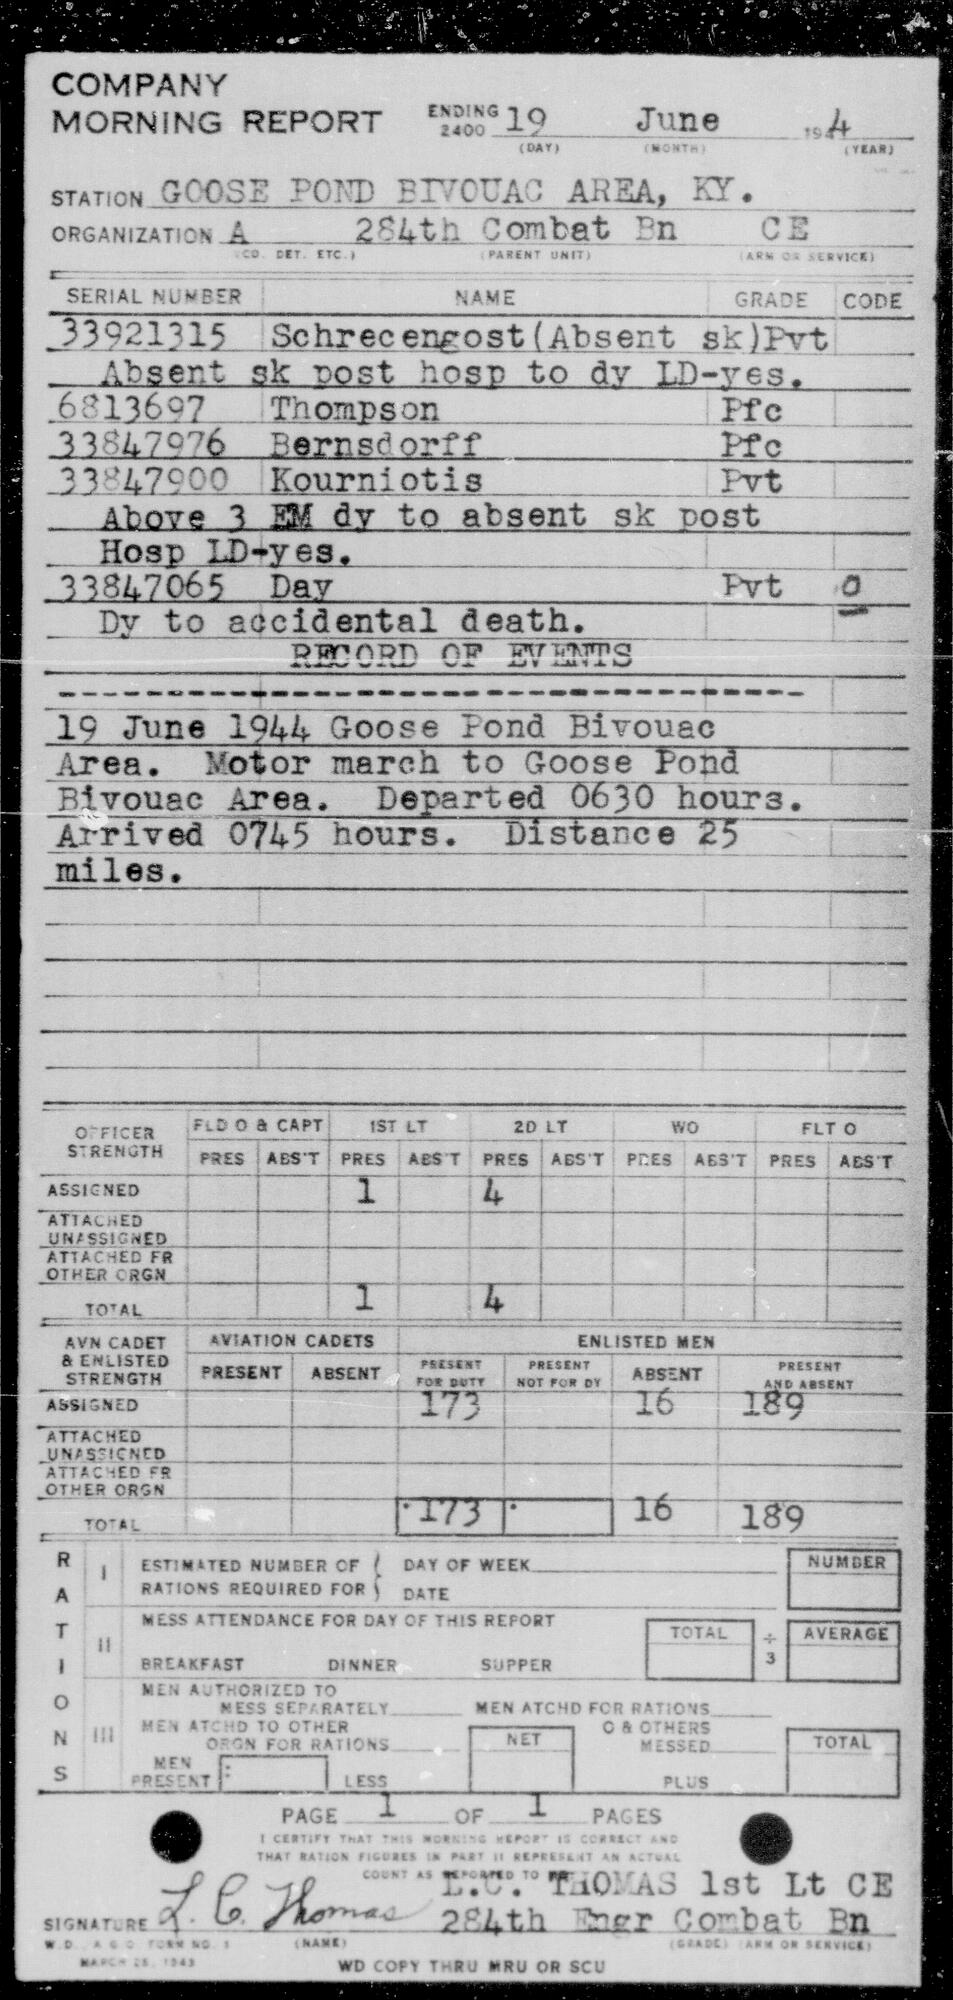 COMPANY
MORNING REPORT ENDING 2400 19 June 1944
(DAY) (MONTH) (YEAR)
STATION GOOSE POND BIVOUAC AREA, KY.
ORGANIZATION A 284th Combat Bn CE
(CO. DET. ETC.) (PARENT UNIT) (ARM OR SERVICE)
SERIAL NUMBER NAME GRADE CODE
33921315 Schrecengost(Absent sk)Pvt
Absent sk post hosp to dy LD-yes.
6813697 Thompson Pfc
33847976 Bernsdorff Pfc
33847900 Kourniotis Pvt
Above 3 EM dy to absent sk post
Hosp LD-yes.
33847065 Day Pvt O
Dy to accidental death.
RECORD OF EVENTS
-----------------------------------------
19 June 1944 Goose Pond Bivouac
Area. Motor march to Goose Pond
Bivouac Area. Departed 0630 hours.
Arrived 0745 hours. Distance 25
miles.
OFFICER STRENGTH FLD O & CAPT 1ST LT 2D LT WO FLT O
PRES ABS'T PRES ABS'T PRES ABS'T PRES ABS'T PRES ABS'T
ASSIGNED 1 4
ATTACHED
UNASSIGNED
ATTACHED FR
OTHER ORGN
TOTAL 1 4
AVN CADET & ENLISTED STRENGTH AVIATION CADETS ENLISTED MEN
PRESENT ABSENT PRESENT FOR DUTY PRESENT NOT FOR DY ABSENT PRESENT AND ABSENT
ASSIGNED 173 16 189
ATTACHED
UNASSIGNED
ATTACHED FR
OTHER ORGN
TOTAL 173 16 189
RATIONS
I ESTIMATED NUMBER OF RATIONS REQUIRED FOR DAY OF WEEK DATE NUMBER
II MESS ATTENDANCE FOR DAY OF THIS REPORT TOTAL ÷ 3 AVERAGE
BREAKFAST DINNER SUPPER
III MEN AUTHORIZED TO
MESS SEPARATELY MEN ATCHD FOR RATIONS
MEN ATCHD TO OTHER
ORGN FOR RATIONS NET O & OTHERS MESSED TOTAL
MEN PRESENT LESS PLUS
PAGE 1 OF 1 PAGES
I CERTIFY THAT THIS MORNING REPORT IS CORRECT AND
THAT RATION FIGURES IN PART II REPRESENT AN ACTUAL
COUNT AS REPORTED TO ME
L.C. THOMAS 1st Lt CE
SIGNATURE L. C. Thomas 284th Engr Combat Bn
W.D., A.G.O. FORM NO. 1 (NAME) (GRADE) (ARM OR SERVICE)
MARCH 25, 1943
WD COPY THRU MRU OR SCU